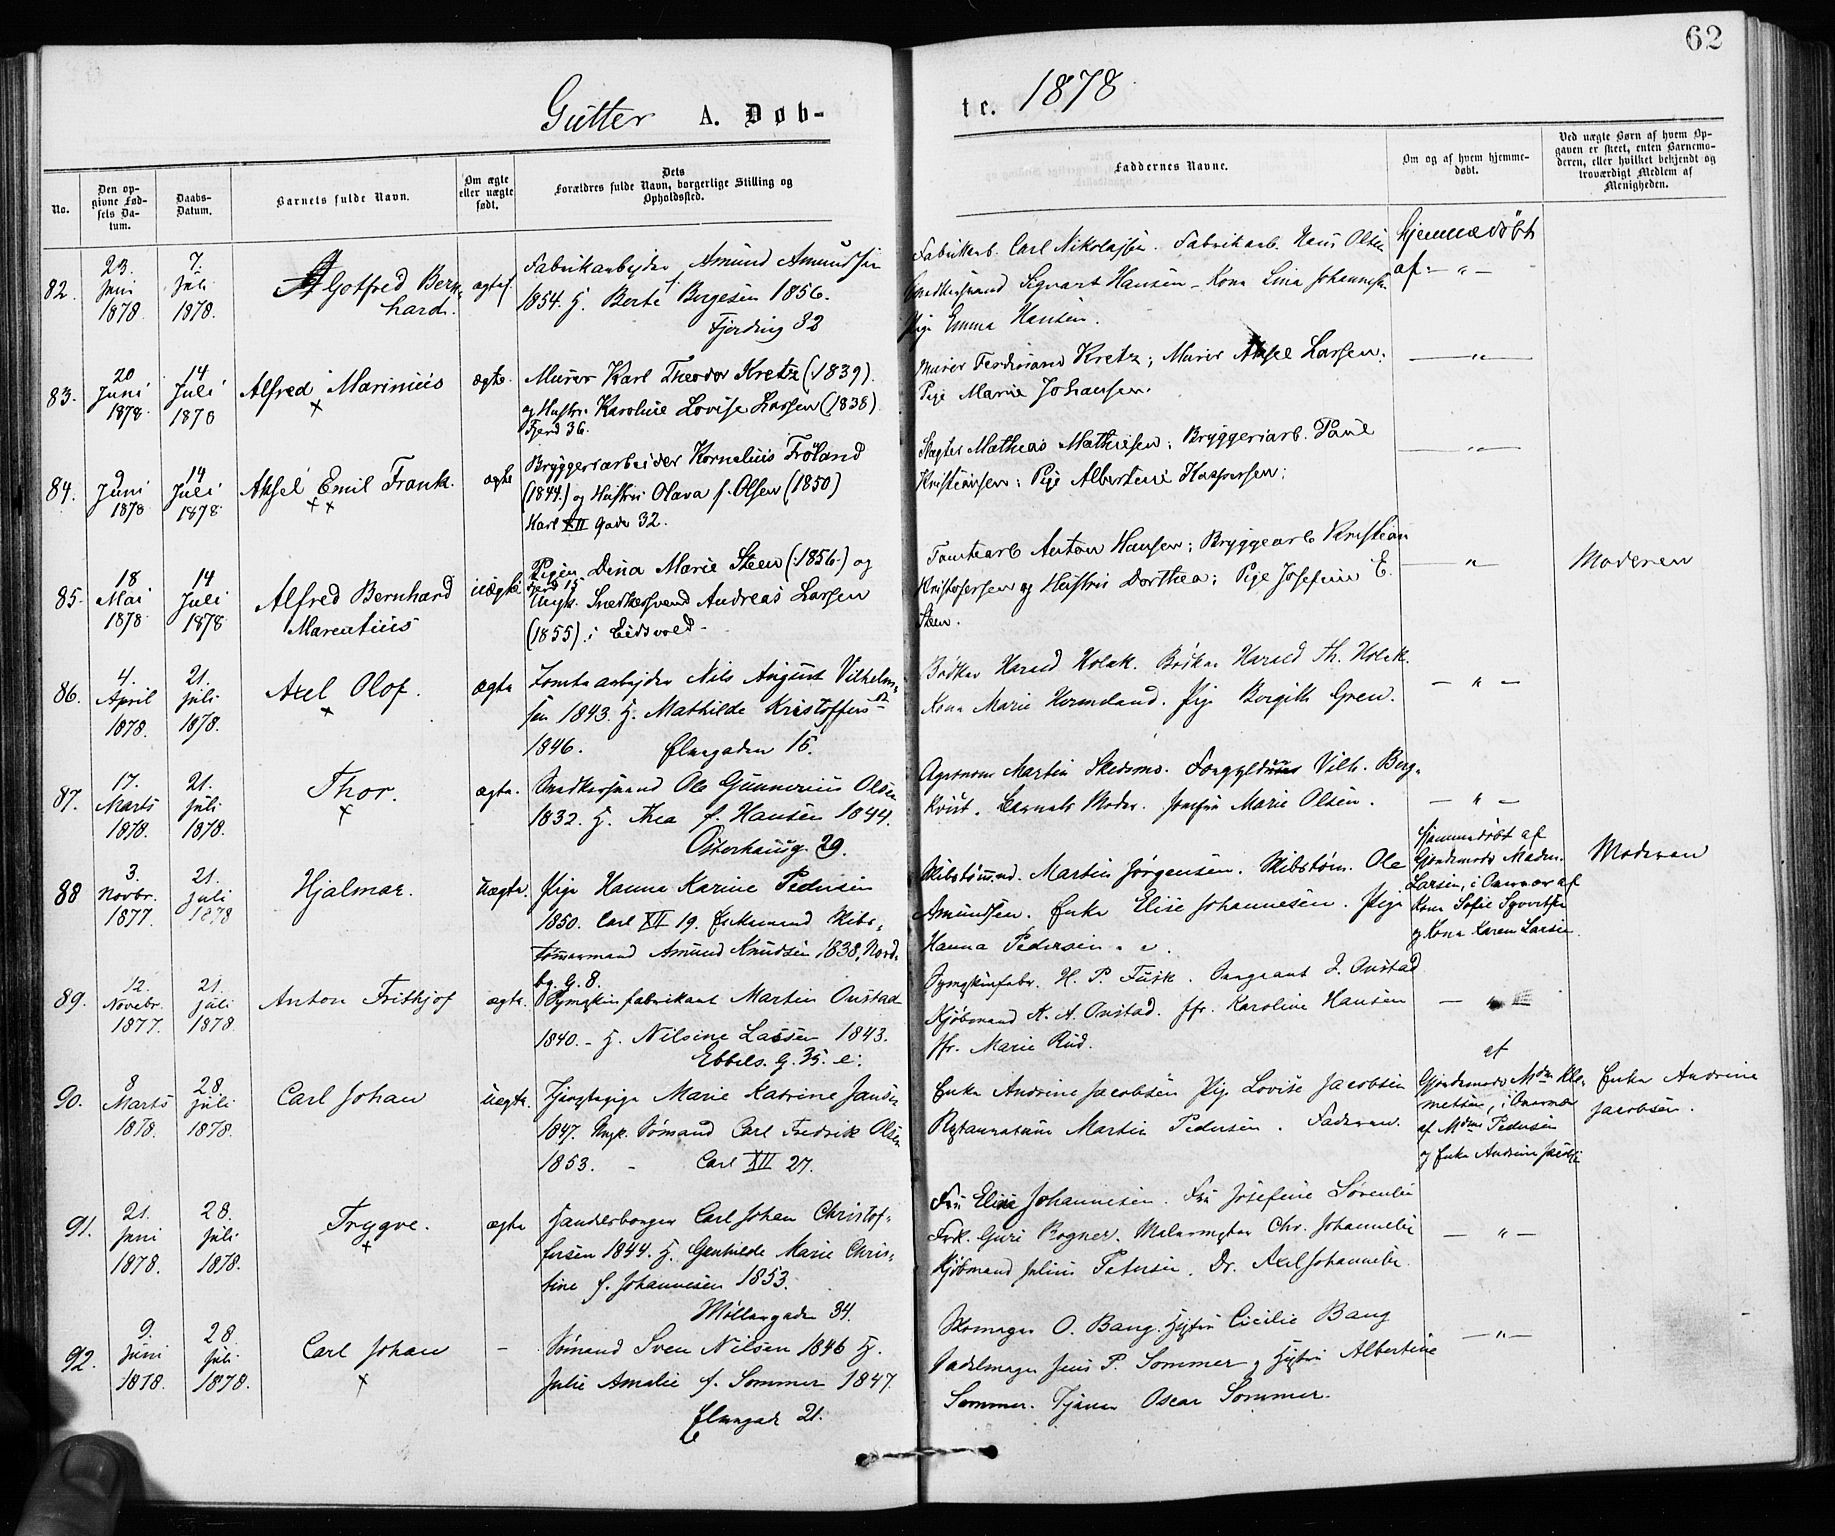 62
Gutter A. Døb-
te. 1878
No.
Den op-
givne Fød-
sels Da-
tum.
Daabs-
Datum.
Barnets fulde Navn.
Om ægte
eller uægte
født.
Dets
Forældres fulde Navn, borgerlige Stilling og
Opholdssted.
Faddernes Navne.
Om og af hvem hjemme-
døbt.
Ved uægte Børn af hvem Op-
gaven er skeet, enten Barnemo-
deren, eller hvilket bekjendt og
troværdigt Medlem af
Menigheden.
82.
23.
Juni
1878.
7.
Juli
1878.
Gotfred Bern-
hard.
Fabrikarbeider Amund Amundsen
1854. H. Berte Borgesen 1856.
Fjerding 82
Fabrikarb. Carl Nikolajsen. Fabrikarb. Hans Olsen
Snedkersvend Sigvart Hansen - Kona Lina Johannesen
Pige Emma Hansen.
Hjemmedøbt
af - " -
83.
20
Juni
1878.
14
Juli
1878
Alfred Marinius
ægte.
Murer Karl Theodor Kretz (1839).
og Hustr. Karoline Lovise Larsen (1838)
Fjerd 36.
Murer Ferdinand Kretz; Murer Aksel Larsen.
Pige Marie Johansen.
— " —
84.
9
Juni
1878
14
Juli
1878.
Aksel Emil Frank.
ægte
Bryggeriarbeider Kornelius Fröland
(1844.) og Hustru Olava f. Olsen (1850)
Karl XII Gade 32.
Slagter Mathias Mathiesen; Bryggeriarb. Paul
Kristiansen; Pige Albertine Kaspersen;
— " —
85.
18
Mai
1878
14
Juli
1878
Alfred Bernhard
Marentius
uægte
Pigen Dina Marie Steen (1856.) og
Fjerd 15
Ungk. Snedkersvend Andreas Larsen
(1855) i Eidsvold -
Tomtearb Anton Hansen; Bryggearb Kristian
Kristofersen og Hustru Dorthea; Pige Josefine E.
Steen.
— " —
Moderen
86.
4.
April
1878.
21.
Juli
1878.
Axel Olof.
ægte
Tomtearbejder Nils August Vilhelm-
sen 1843. H. Mathilde Kristoffers
1846. Elvegaden 15.
Bødker Harald Kolak. Bødker Harald Th. Kolak.
Kona Marie Hermeland. Pige Borgith Gren.
— " —
87.
17.
Marts
1878.
21.
Juli
1878.
Thor.
ægte.
Snedkersvend Ole Gunnerius Olsen
1832. H. Thea f. Hansen 1844.
Osterhausg. 29.
Agronom Martin Skedsmo. Forgylder Vilh. Berg-
kvist. Barnets Moder. Jomfru Marie Olsen.
— " —
88
3.
Novbr.
1877.
21.
Juli
1878
Hjalmar.
uægte.
Pige Hanna Karine Pedersen
1850. Carl XII 19. Enkemand Skibs-
tømmermand Amund Knudsen 1838, Nord-
bg. G. 8.
Skibstømmd. Martin Jørgensen. Skibstøm. Ole
Amundsen. Enke Elise Johannesen. Pige
Hanna Pedersen
Hjemmedøbt af
Gjordemode Madm.
Larsen, i Overvær af
Kona Sofie Syvertsen
og Kona Karen Larsen.
Moderen
89.
12.
Novebr.
1877.
21.
Juli
1878.
Anton Frithjof
ægte.
Symaskinfabrikant Martin Onstad
1840. - H. Nilsine Lassen 1843.
Ebbels. G. 35. e:
Symaskinfabr. H. P. Fusk. Sergeant J. Onstad
Kjøbmand K. A. Onstad. Jfr. Karoline Hansen
Jfr. Marie Rud.
— " —
90.
8
Marts
1878.
28.
Juli
1878.
Carl Johan
uægte.
Tjenestepige Marie Katrine Jansen
1847. Ungk. Sømand Carl Fredrik Olsen
1853. - Carl XII 27.
Enke Andrine Jacobsen Pige Lovise Jacobsen
Restauratrice Martin Pedersen. Faderen.
af
Gjordemode Mdm Kle-
metsen, i Overvær
af Mdme Pedersen
og Enke Andrine Jacobsen
Enke Andrine
Jacobsen.
91.
21.
Juni
1878.
28.
Juli
1878.
Trygve.
ægte
Handelsborger Carl Johan Christof-
fersen 1844. H. Gunhilde Marie Chris-
tine f. Johannesen 1853.
Møllergaden 34.
Fru Elise Johannesen. Fru Josefine Sørensen
Frk. Guri Rogner. Malermester Chr. Johannesen
Kjøbmand Julius Petersen. Dr. Axel Johannesen.
— " —
92.
9.
Juni
1878.
28.
Juli
1878.
Carl Johan
-
Sømand Sven Nilsen 1846 H.
Julie Amalie f. Sommer 1847.
Elvegad 21.
Skomager O. Bang. Hustru Cicilie Bang
Sadelmager Jens P. Sommer og Hustru Albertine
Sommer. Tjener Oscar Sommer.
— " —